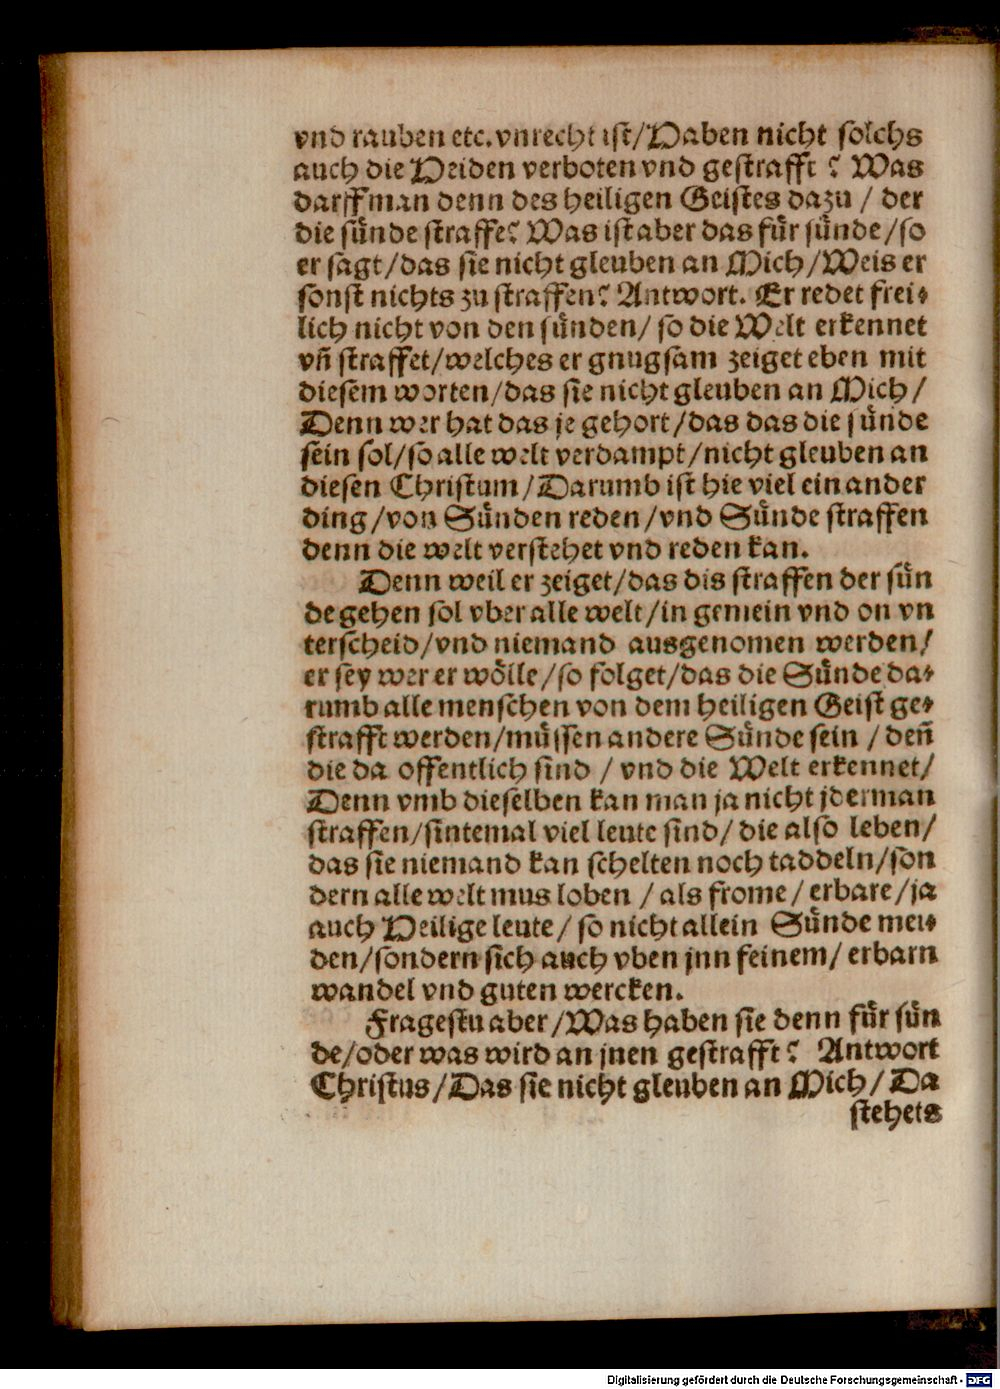 vnd rauben etc. vnrecht ist/Haben nicht solchs
auch die Heiden verboten vnd gestrafft? Was
darff man denn des heiligen Geistes dazu / der
die sünde straffe? Was ist aber das für sünde/so
er sagt/das sie nicht gleuben an Mich/Weis er
sonst nichts zu straffen? Antwort. Er redet frei-
lich nicht von den sünden/ so die Welt erkennet
vñ straffet/welches er gnugsam zeiget eben mit
diesem worten/das sie nicht gleuben an Mich/
Denn wer hat das je gehort/das das die sünde
sein sol/so alle welt verdampt/nicht gleuben an
diesen Christum/Darumb ist hie viel ein ander
ding/von Sünden reden/vnd Sünde straffen
denn die welt verstehet vnd reden kan.
Denn weil er zeiget/das dis straffen der sün
de gehen sol vber alle welt/in gemein vnd on vn
terscheid/vnd niemand ausgenomen werden/
er sey wer er wölle/so folget/das die Sünde da-
rumb alle menschen von dem heiligen Geist ge-
strafft werden/müssen andere Sünde sein / deñ
die da offentlich sind / vnd die Welt erkennet/
Denn vmb dieselben kan man ja nicht jderman
straffen/sintemal viel leute sind/ die also leben/
das sie niemand kan schelten noch taddeln/son
dern alle welt mus loben / als frome/ erbare/ja
auch Heilige leute/ so nicht allein Sünde mei-
den/sondern sich auch vben jnn feinem/ erbarn
wandel vnd guten wercken.
Fragestu aber/Was haben sie denn für sün
de/oder was wird an jnen gestrafft? Antwort
Christus/Das sie nicht gleuben an Mich/ Da
stehets
Digitalisierung gefördert durch die Deutsche Forschungsgemeinschaft - DFG